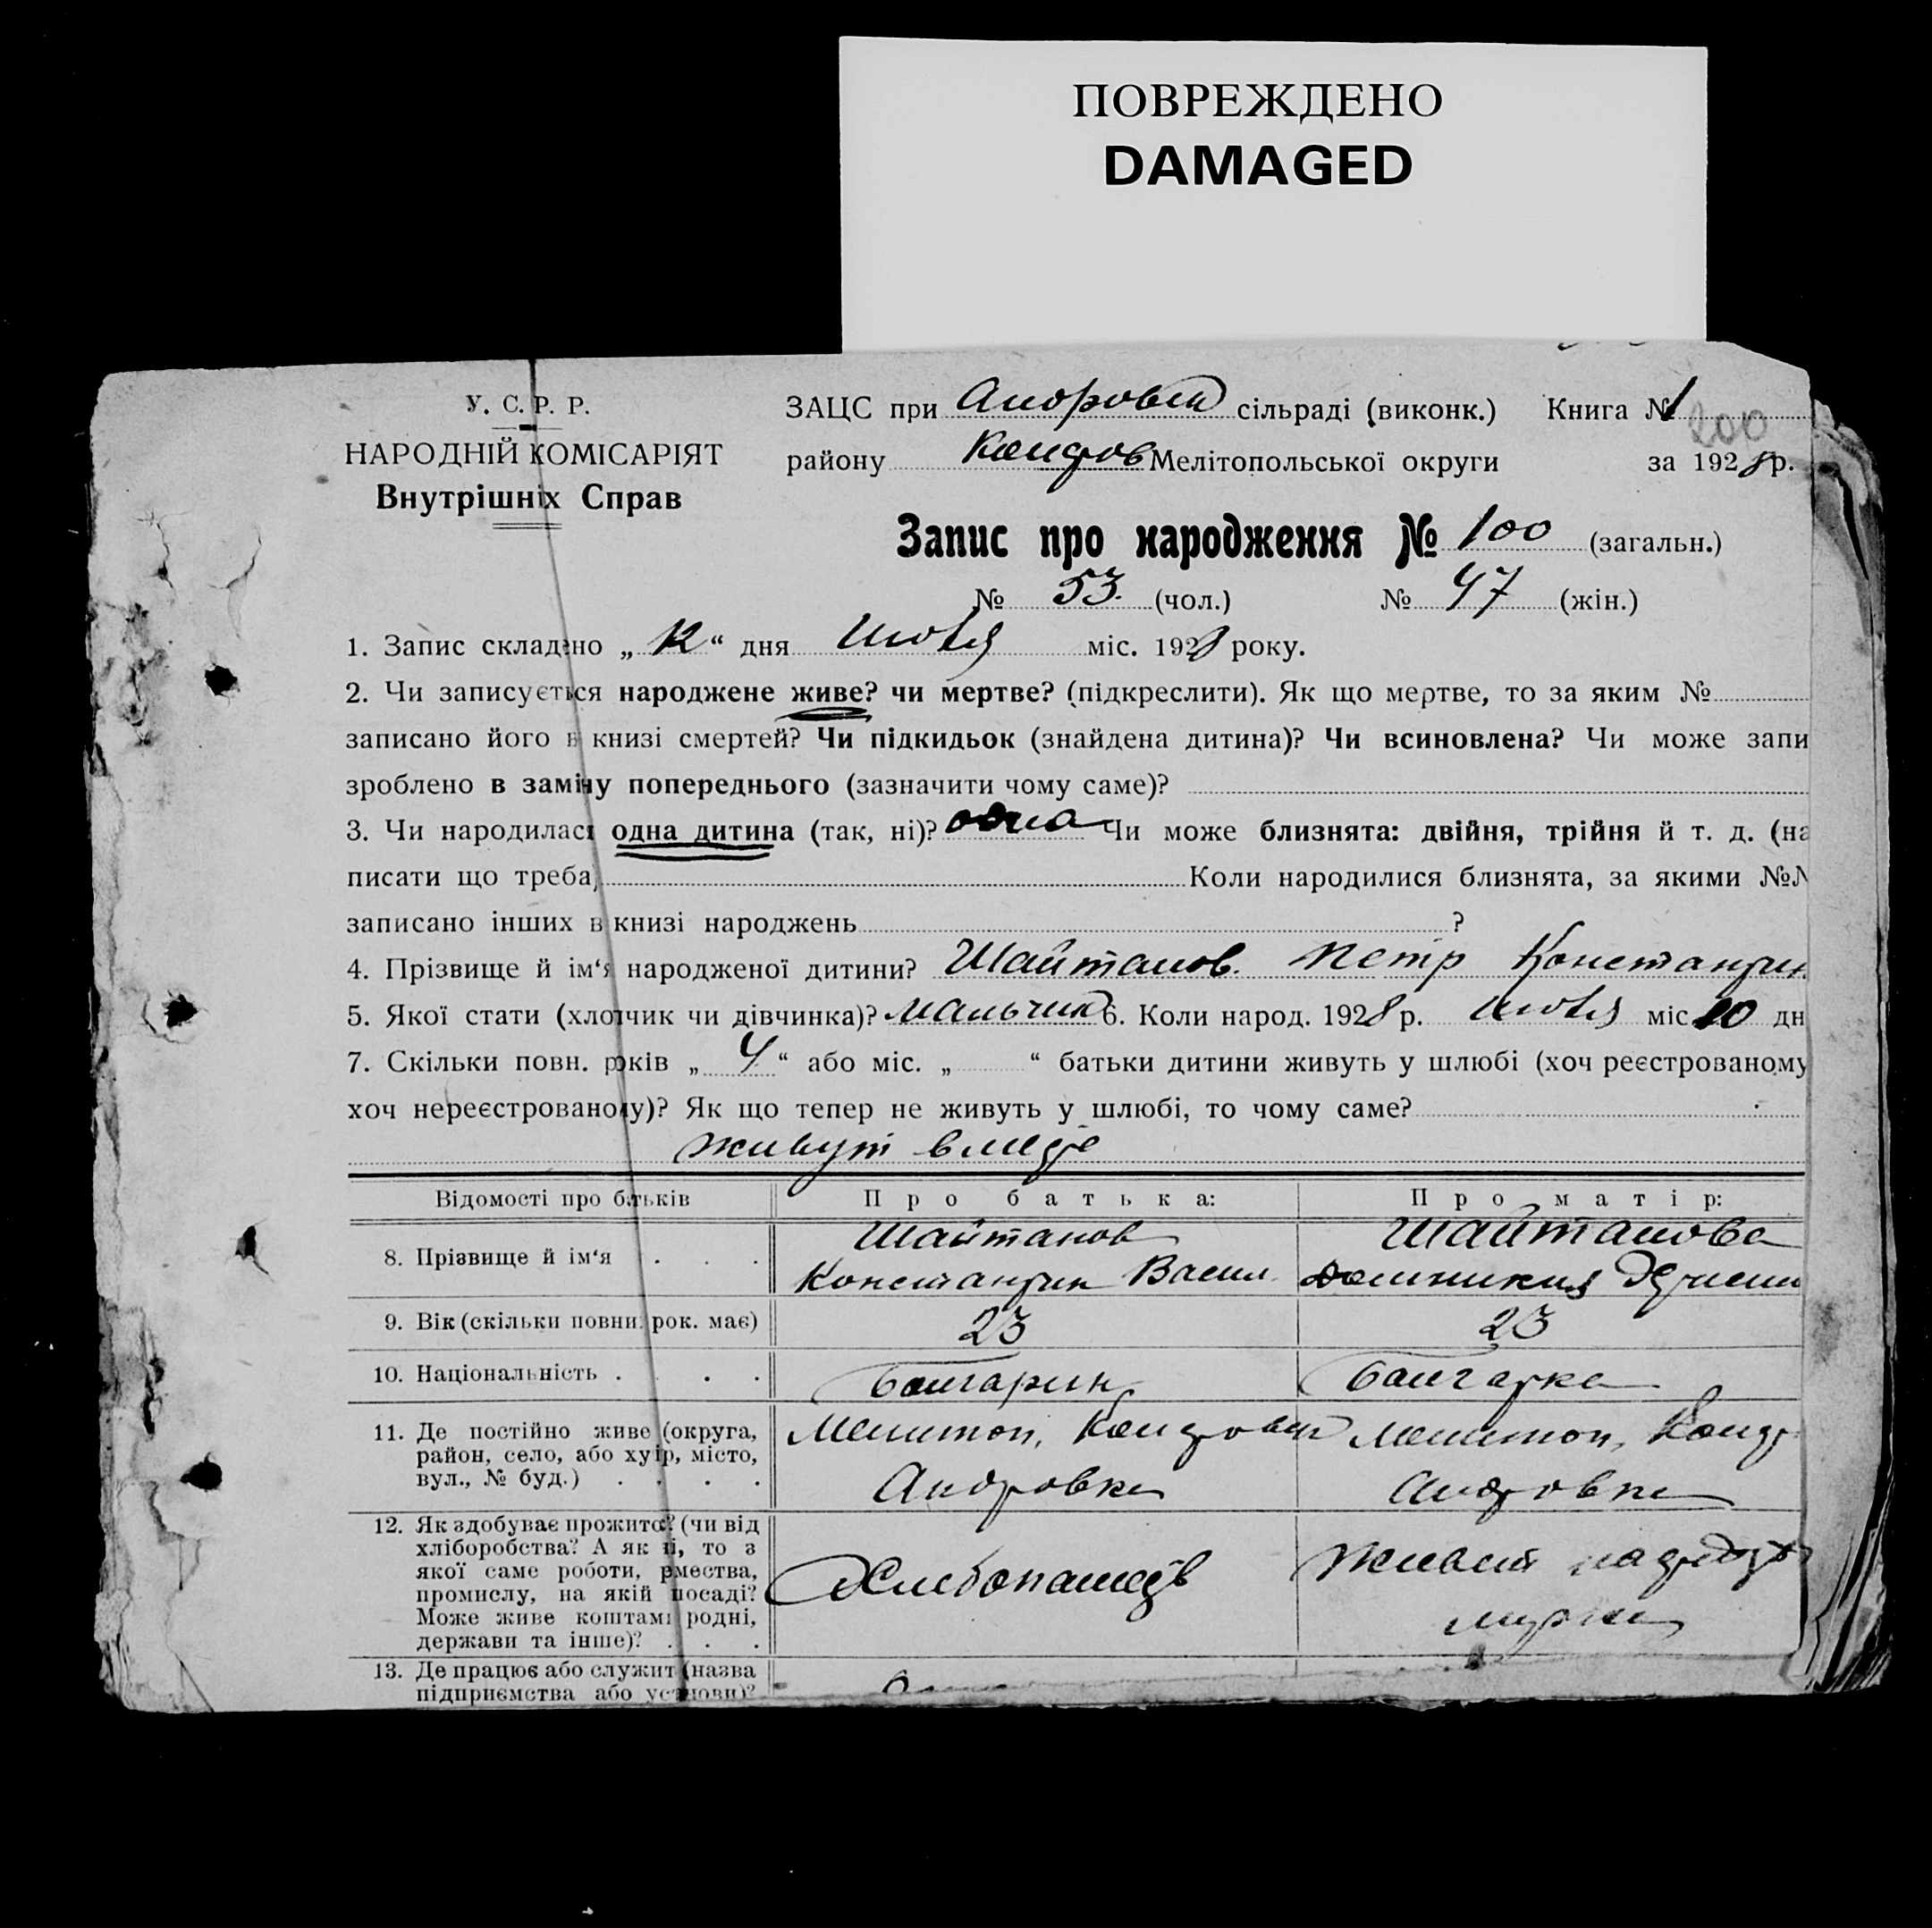 ПОВРЕЖДЕНО
DAMAGED
У. С. Р. Р.
НАРОДНІЙ КОМІСАРІЯТ
Внутрішніх Справ
ЗАЦС при Андровск сільраді (виконк.) Книга № 1
200
району Мелітопольської округи за 1928 р.
Запис про народження № 100 (загальн.)
№ 53. (чол.) № 47 (жін.)
1. Запис складено „ 12 “ дня Июля міс. 1928 року.
2. Чи записується народжене живе? чи мертве? (підкреслити). Як що мертве, то за яким №
записано його в книзі смертей? Чи підкидьок (знайдена дитина)? Чи всиновлена? Чи може запи
зроблено в заміну попереднього (зазначити чому саме)?
3. Чи народилася одна дитина (так, ні)? одна Чи може близнята: двійня, трійня й т. д. (на
писати що треба) Коли народилися близнята, за якими №№
записано інших в книзі народжень ?
4. Прізвище й ім‘я народженої дитини? Шайтанов. Петр Константин
5. Якої стати (хлопчик чи дівчинка)? мальчик 6. Коли народ. 1928 р. Июля міс. 10 дн
7. Скільки повн. років „ 4 “ або міс. „ “ батьки дитини живуть у шлюбі (хоч реєстрованому
хоч нереєстрованому)? Як що тепер не живуть у шлюбі, то чому саме?
живут
Відомості про батьків Про батька: Про матір:
8. Прізвище й ім‘я . . . Шайтанов Шайтанова
Константин Васил. Домникия
9. Вік (скільки повни. рок. має) 23 23
10. Національність . . . . Болгарин Болгарка
11. Де постійно живе (округа,
район, село, або хутір, місто,
вул., № буд.) . . . .
Мелитоп. Мелитоп,
Андровка Андровка
12. Як здобуває прожиток? (чи від
хліборобства? А як ні, то з
якої саме роботи, ремества,
промислу, на якій посаді?
Може живе коштами родні,
держави та інше)? . . .
Хлебопашец
мужа
13. Де працює або служить (назва
підприємства або установи)?